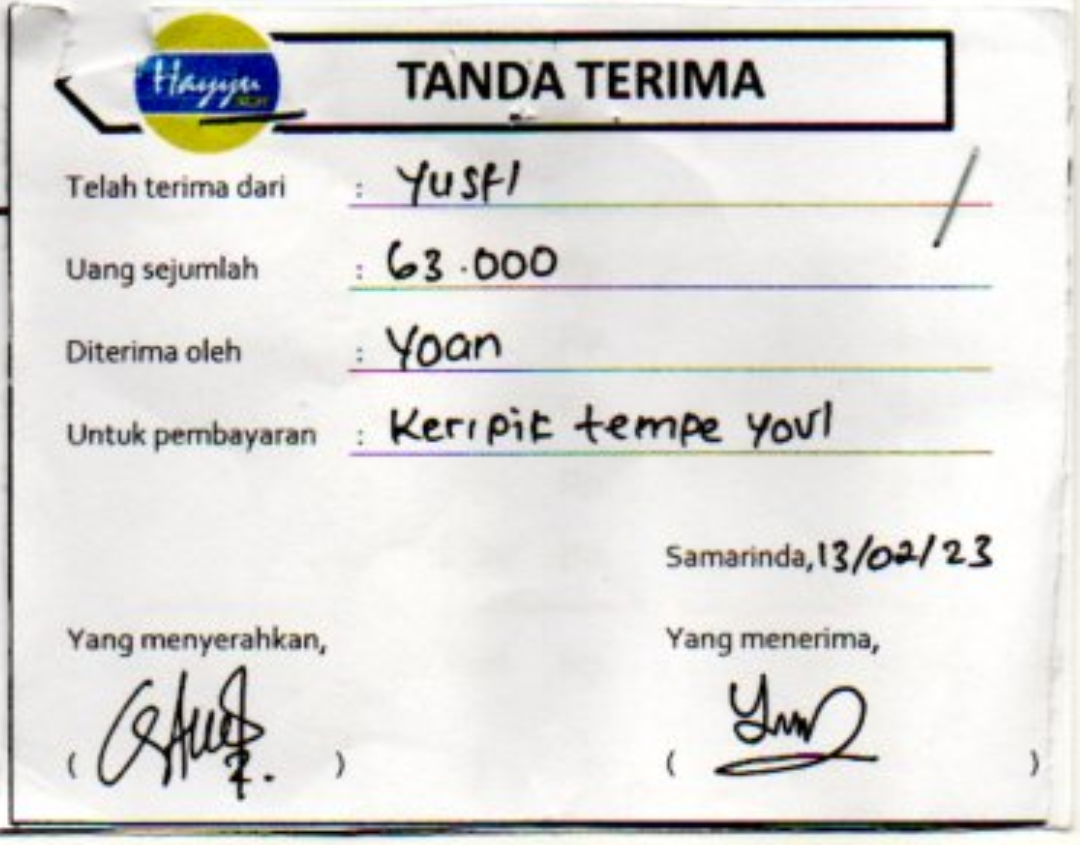 Hayyu
TANDA TERIMA
Telah terima dari : Yusfi
Uang sejumlah : 63.000
Diterima oleh : Yoan
Untuk pembayaran : Keripik tempe
Samarinda, 13/02/23
Yang menyerahkan,
Yang menerima,
( )
( )